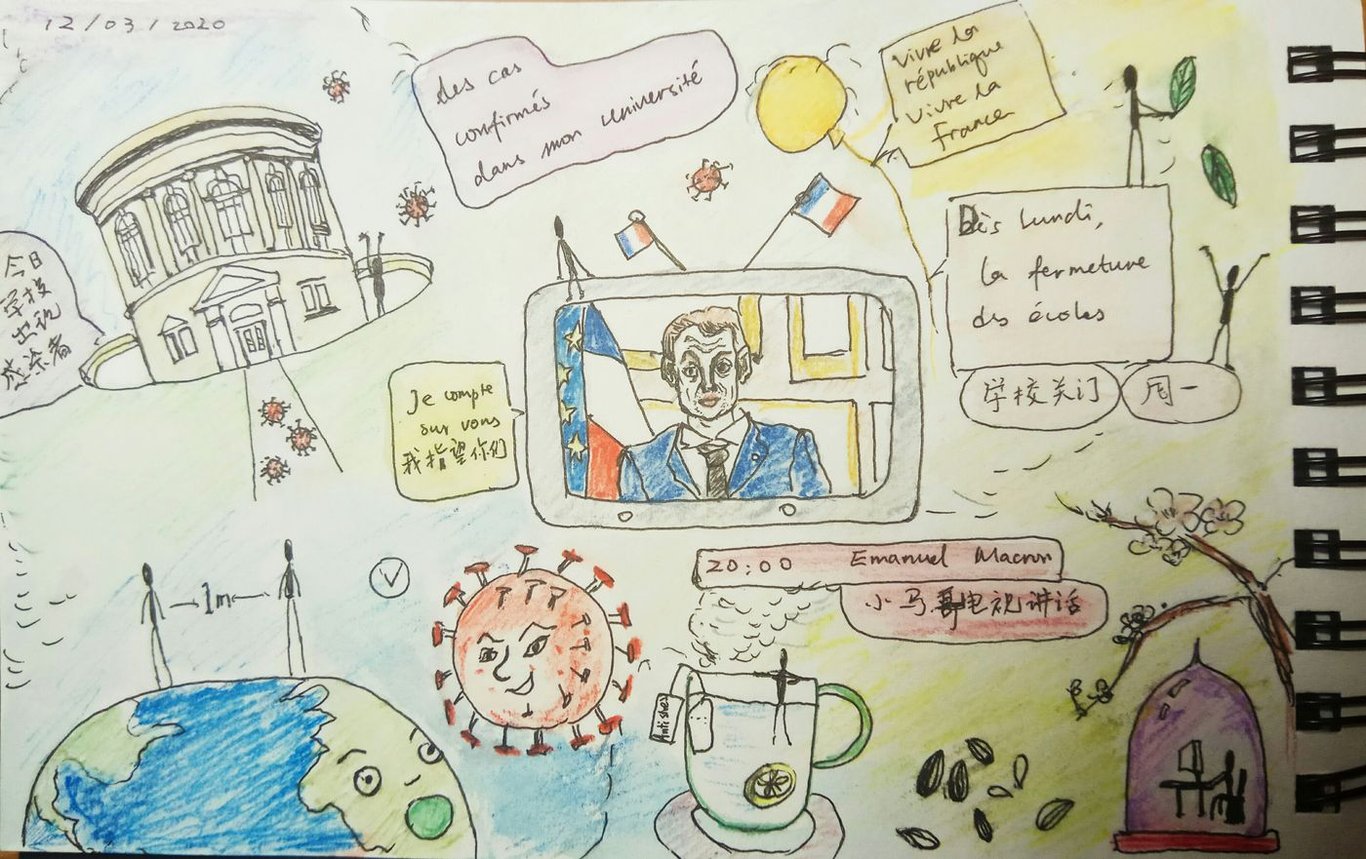 12/03/2020
des cas
confirmés
dans mon université
Vivre la
république
Vivre la
france
今日
学校
出现
感染者
Dès lundi,
la fermeture
des écoles
学校关门
周一
Je compte
sur vous
我指望你们
20:00 Emanuel Macron
小马哥电视讲话
1m